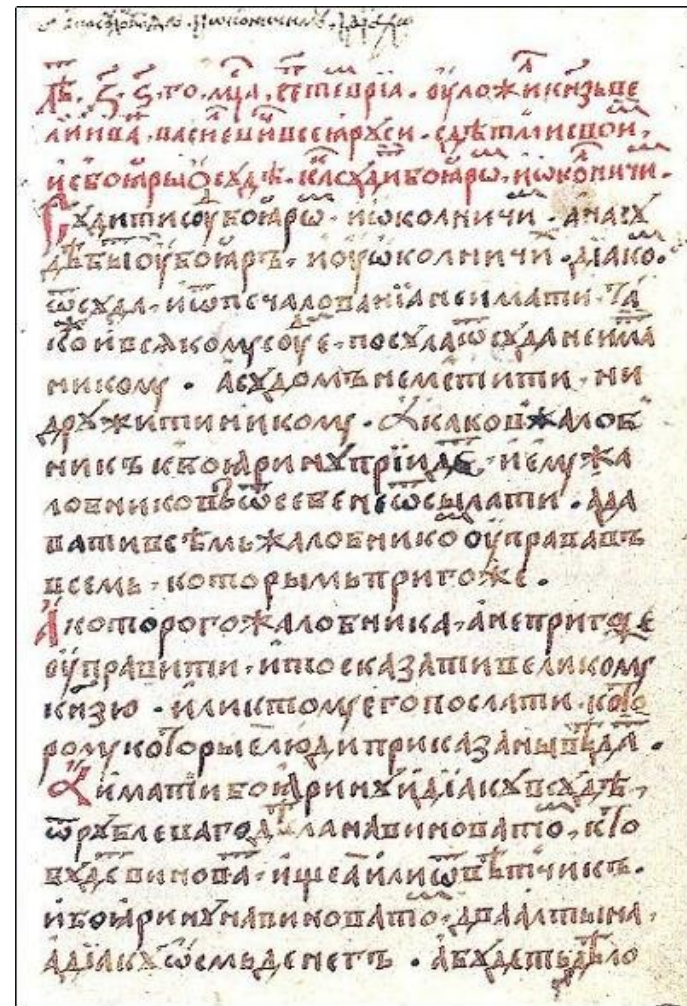 Лѣ҃. ҂ѕ҃. ѕ҃. го. мц҃а. септеврїа. оуложи кнѧзь ве
лики ива. васи вцⷭи всеꙗ руси. с дѣтми свои,
и с боꙗры ѡ сꙋдѣ. ка сꙋди боꙗрѡ, и ѡколничи.
Сꙋдити сꙋ боꙗрѡ. и ѡколничи. а на сꙋ
дѣ быти оу боꙗръ, и оу ѡколничи. дїако.
ѿ сꙋда. и ѿ печалованїа не имати. та
ко и всякому сꙋе. посула ѿ суда не има
никому. а судомъ не мстити, ни
дрꙋжити никому. а каков жалоб
никъ к боꙗринꙋ прїидѣ, и ему жа
лобниковъ ѿ себе не ѿсылати. а да
вати всѣмь жалобнико оуправа въ
всемь. которымь пригоже.
А которого жалобника, а не пригоже
оуправити. и то сказати великому
кнѧзю. или к тому его послати. кото
рому которые люди приказаны вѣда.
А имати боꙗринꙋ и дїакꙋ в сꙋдѣ,
ѿ рꙋблеваго дѣла на виновато, кто
бꙋдѣ винова. ищеа или ѿвѣтчикъ.
и боꙗринꙋ на виновато. два алтына,
а дїакꙋ ѡсмь денегъ. а бꙋдеть дѣло